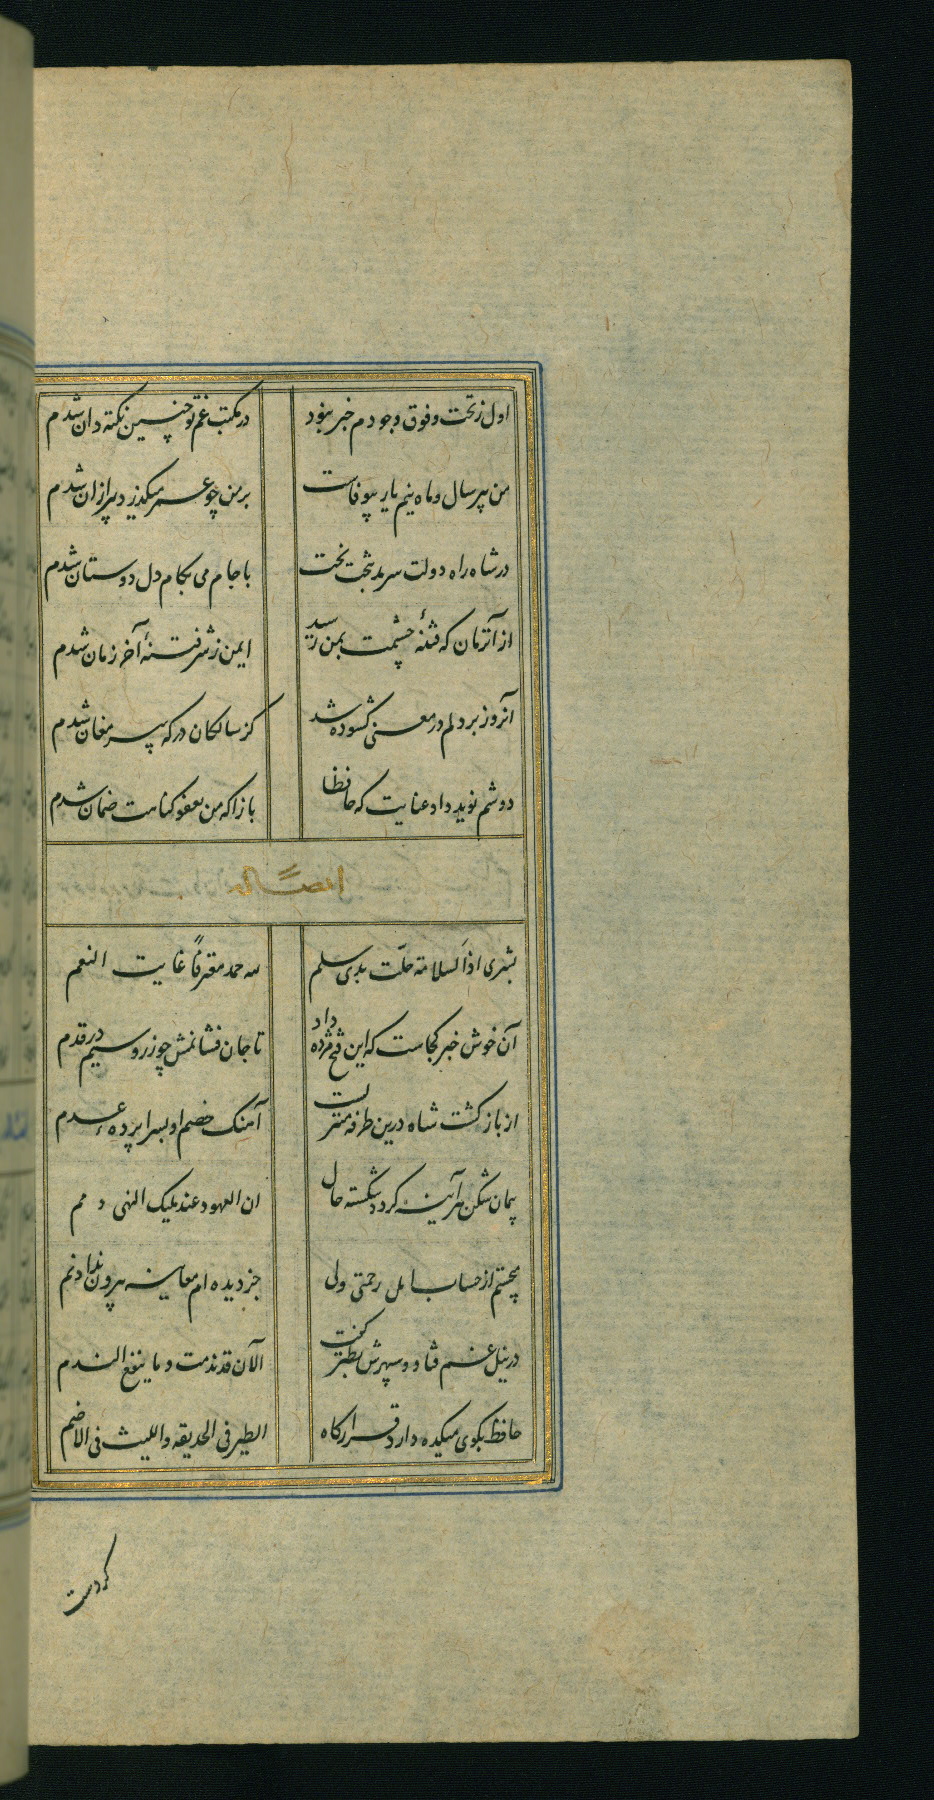 اول ز تحت و فوق وجودم خبر نبود در مکتب غم تو چنین نکته دان شدم
من پیر سال و ماه نیم یار بیوفاست بر من چو عمر میگذرد پیر ازان شدم
در شاه راه دولت سرمد بتخت بخت با جام می بکام دل دوستان شدم
از آنزمان که فتنهٔ چشمت بمن رسید ایمن ز شر فتنهٔ آخر زمان شدم
آنروز بر دلم در معنی کشوده شد کز سالکان درکه پیر مغان شدم
دوشم نوید داد عنایت که حافظا بازا که من بعفو کناهت ضمان شدم
ایضاً له
بشری اذا السلامة حلّت بذی سلم لله حمد معترفاً غایت النعم
آن خوش خبر کجاست که این فتح مژده داد تا جان فشانمش چو زر و سیم در قدم
از باز کشت شاه درین طرفه منزلست آهنک خصم او بسرا پرده عدم
پیمان شکن هر آینه کردد شکسته حال ان العهود عند ملیک النهی ذمم
میجستم از حساب امل رحمتی ولی جز دیده ام معاینه بیرون نداد نم
در نیل غم فتاد و سپهرش بطنز کفت الآن قد ندمت و ما ینفع الندم
حافظ بکوی میکده دارد قرارکاه الطیر فی الحدیقه و اللیث فی الاجم
کردست